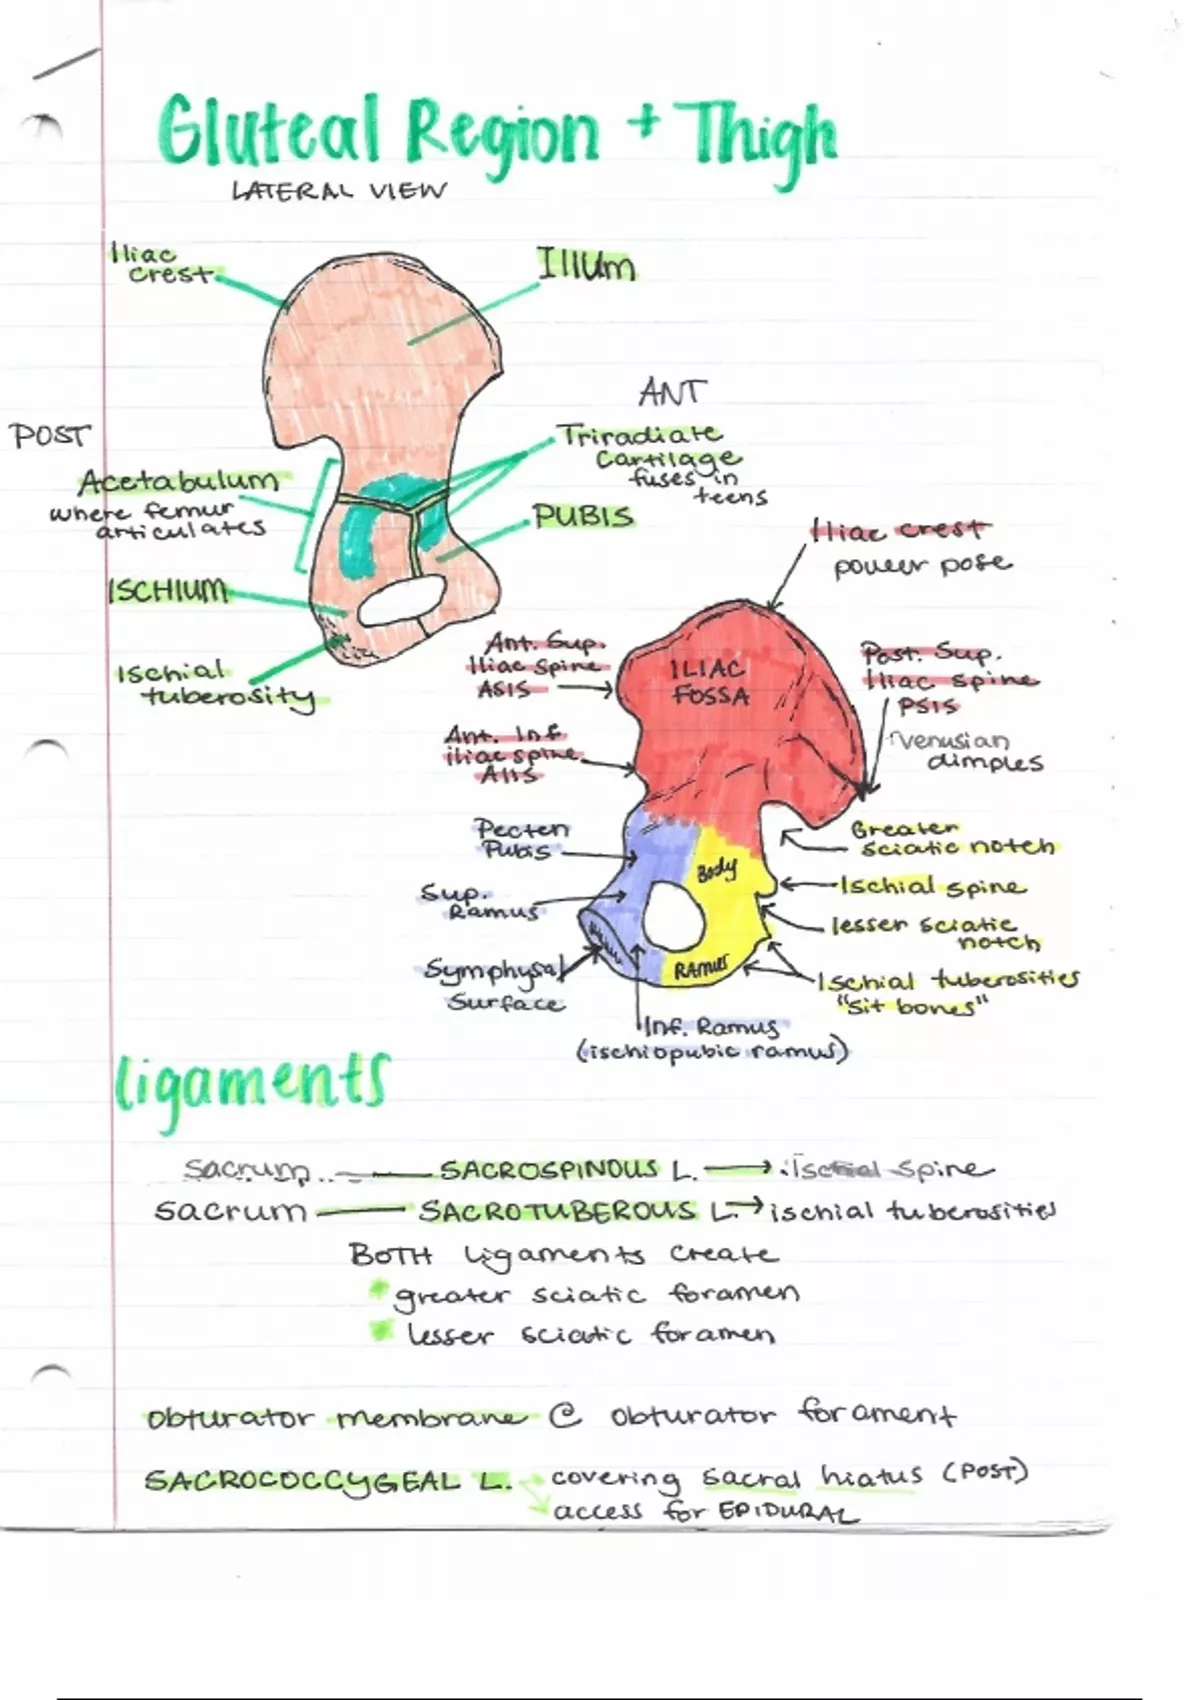 Gluteal Region + Thigh
LATERAL VIEW
Iliac
crest
Illum
POST
ANT
Acetabulum
where femur
articulates
Triradiate
Cartilage
fuses in
teens
PUBIS
ISCHIUM
Ischial
tuberosity
Iliac crest
power pose
Ant. Sup.
Iliac spine
ASIS
ILIAC
FOSSA
Post. Sup.
Iliac spine
PSIS
Venusian
dimples
Ant. Inf
iliac spine
AIIS
Pecten
Pubis
Body
Greater
sciatic notch
Ischial spine
Sup.
Ramus
lesser sciatic
notch
Symphysal
Surface
RAMUS
Ischial tuberosities
"Sit bones"
Inf. Ramus
(ischiopubic ramus)
ligaments
Sacrum — SACROSPINOUS L. → Ischial Spine
Sacrum — SACROTUBEROUS L. → ischial tuberosities
BOTH ligaments create
* greater sciatic foramen
* lesser sciatic foramen
obturator membrane @ obturator forament
SACROCOCCYGEAL L. covering sacral hiatus (POST)
access for EPIDURAL